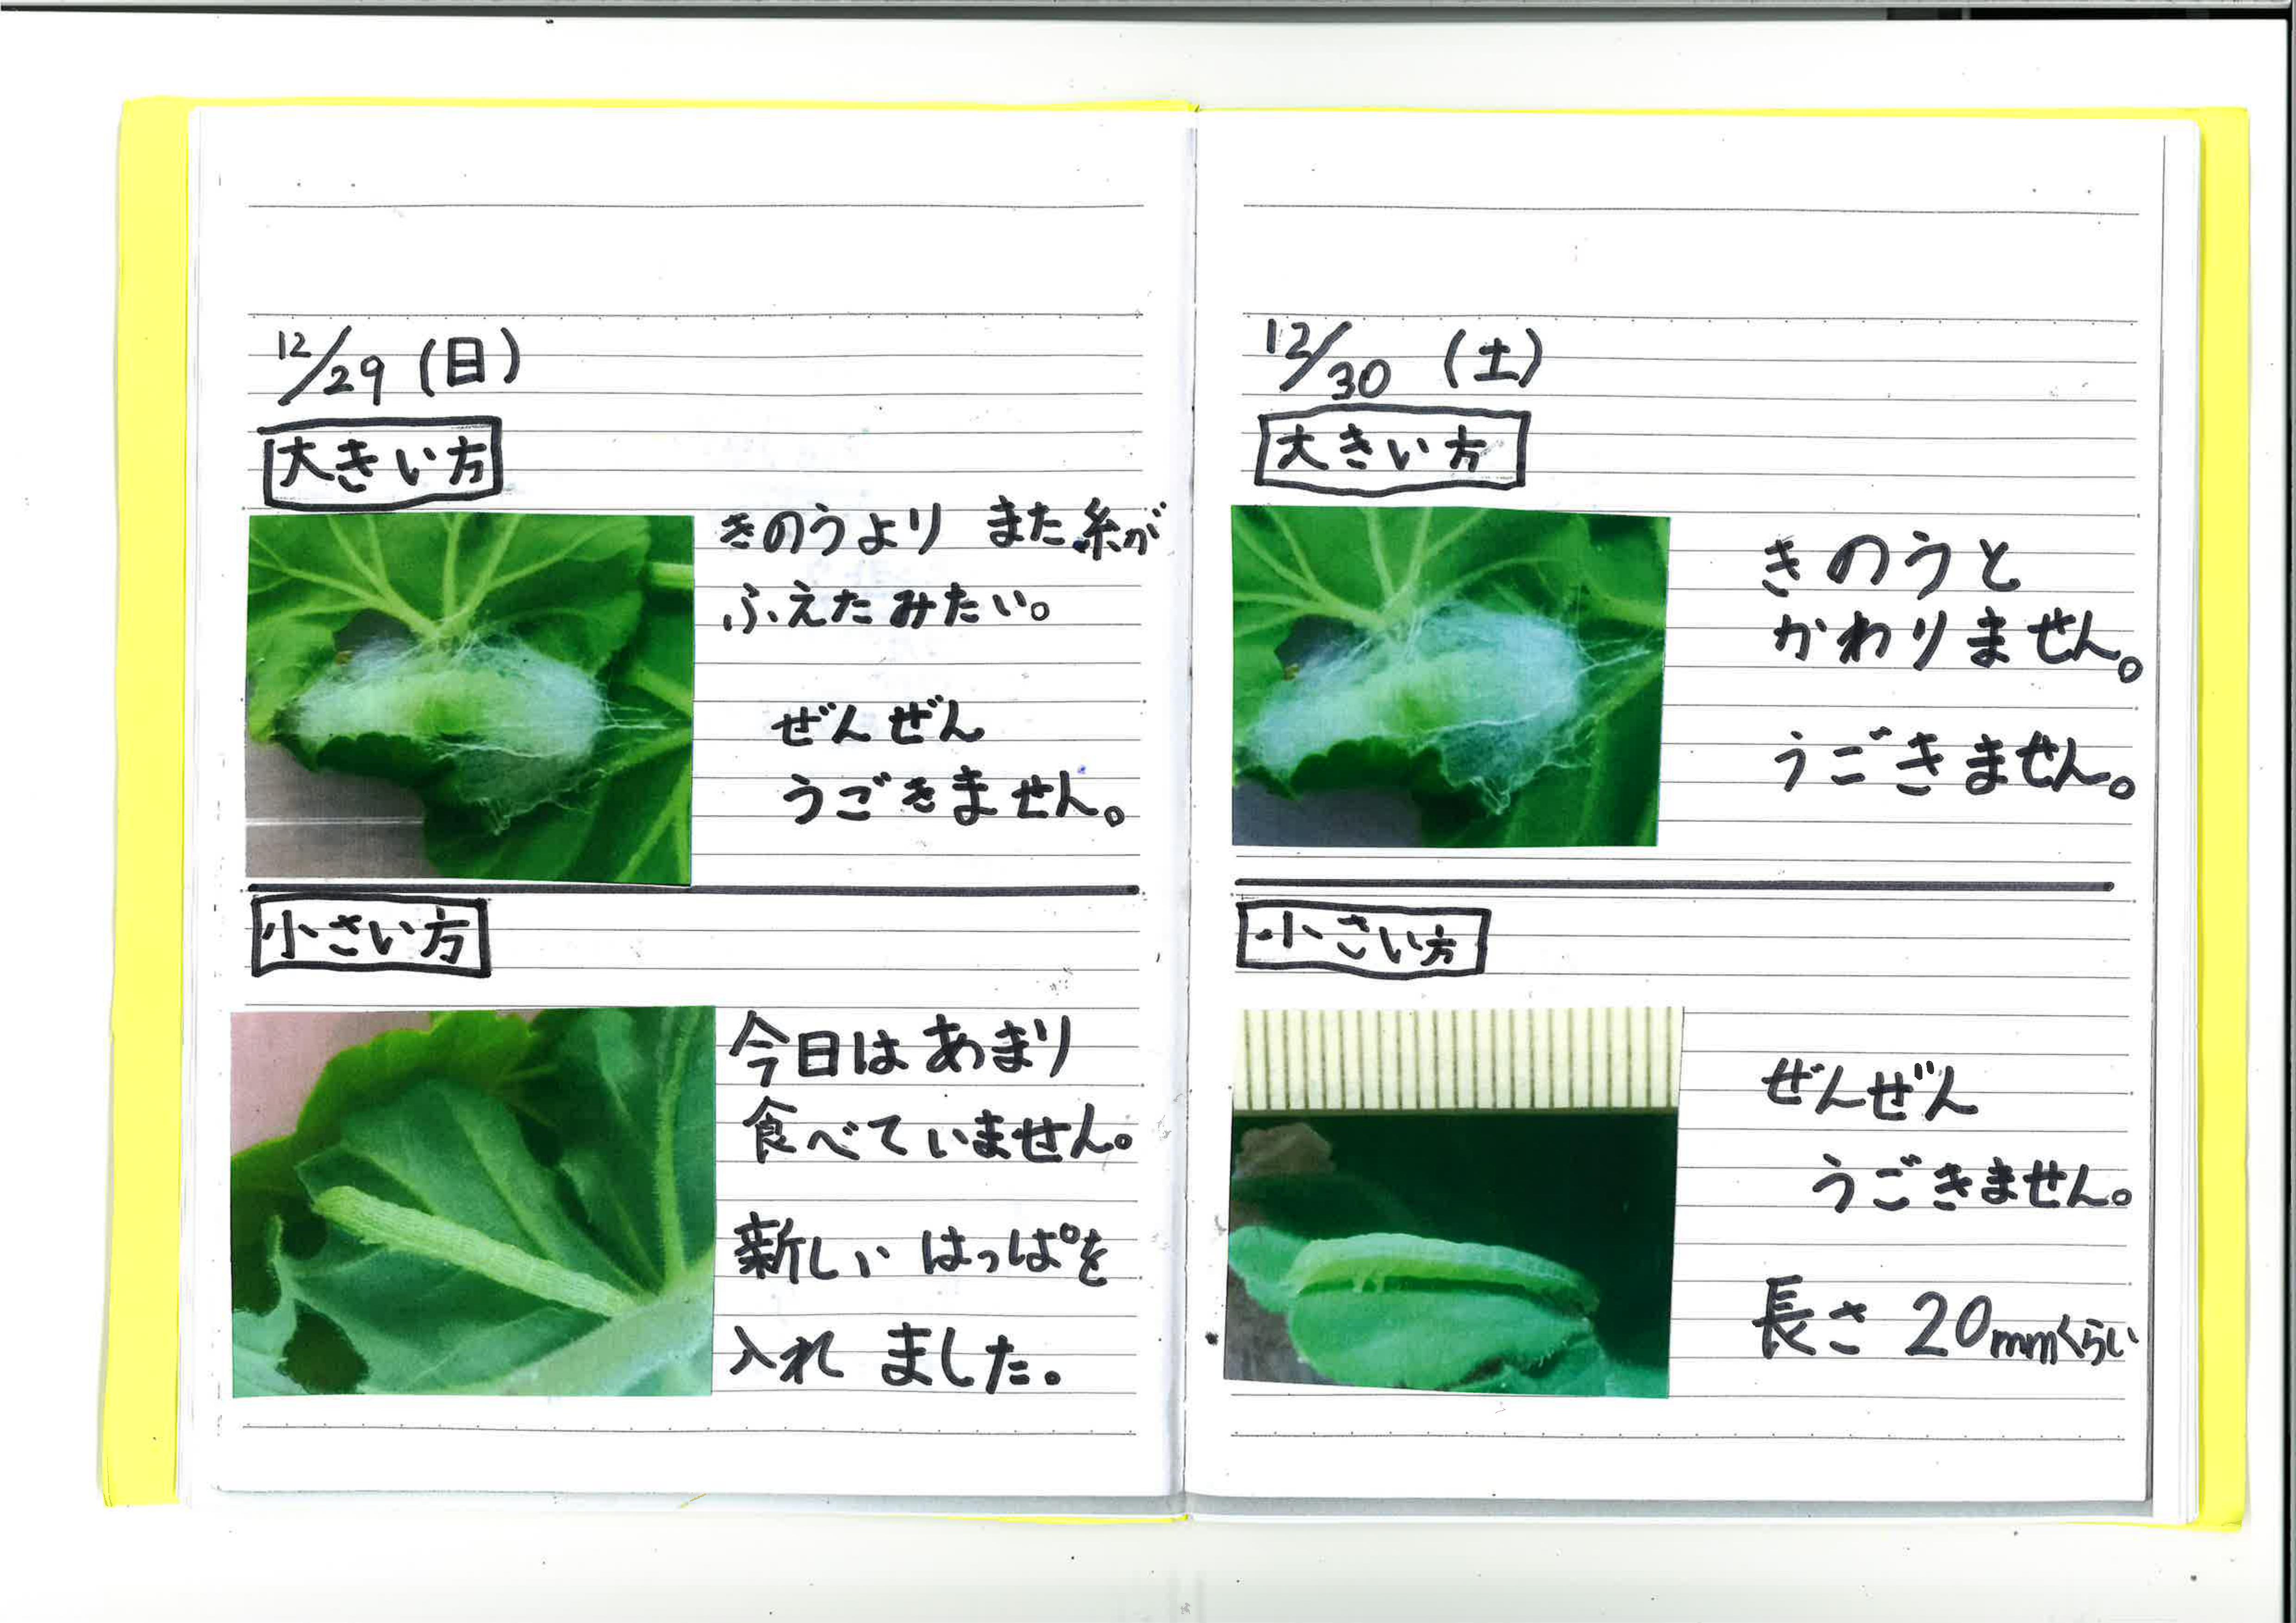 12/29 (日)
大きい方
きのうより また糸が
ふえたみたい。
ぜんぜん
うごきません。
小さい方
今日はあまり
食べていません。
新しい はっぱを
入れ ました。
12/30 (土)
大きい方
きのうと
かわりません。
うごきません。
小さい方
ぜんぜん
うごきません。
長さ 20mmくらい